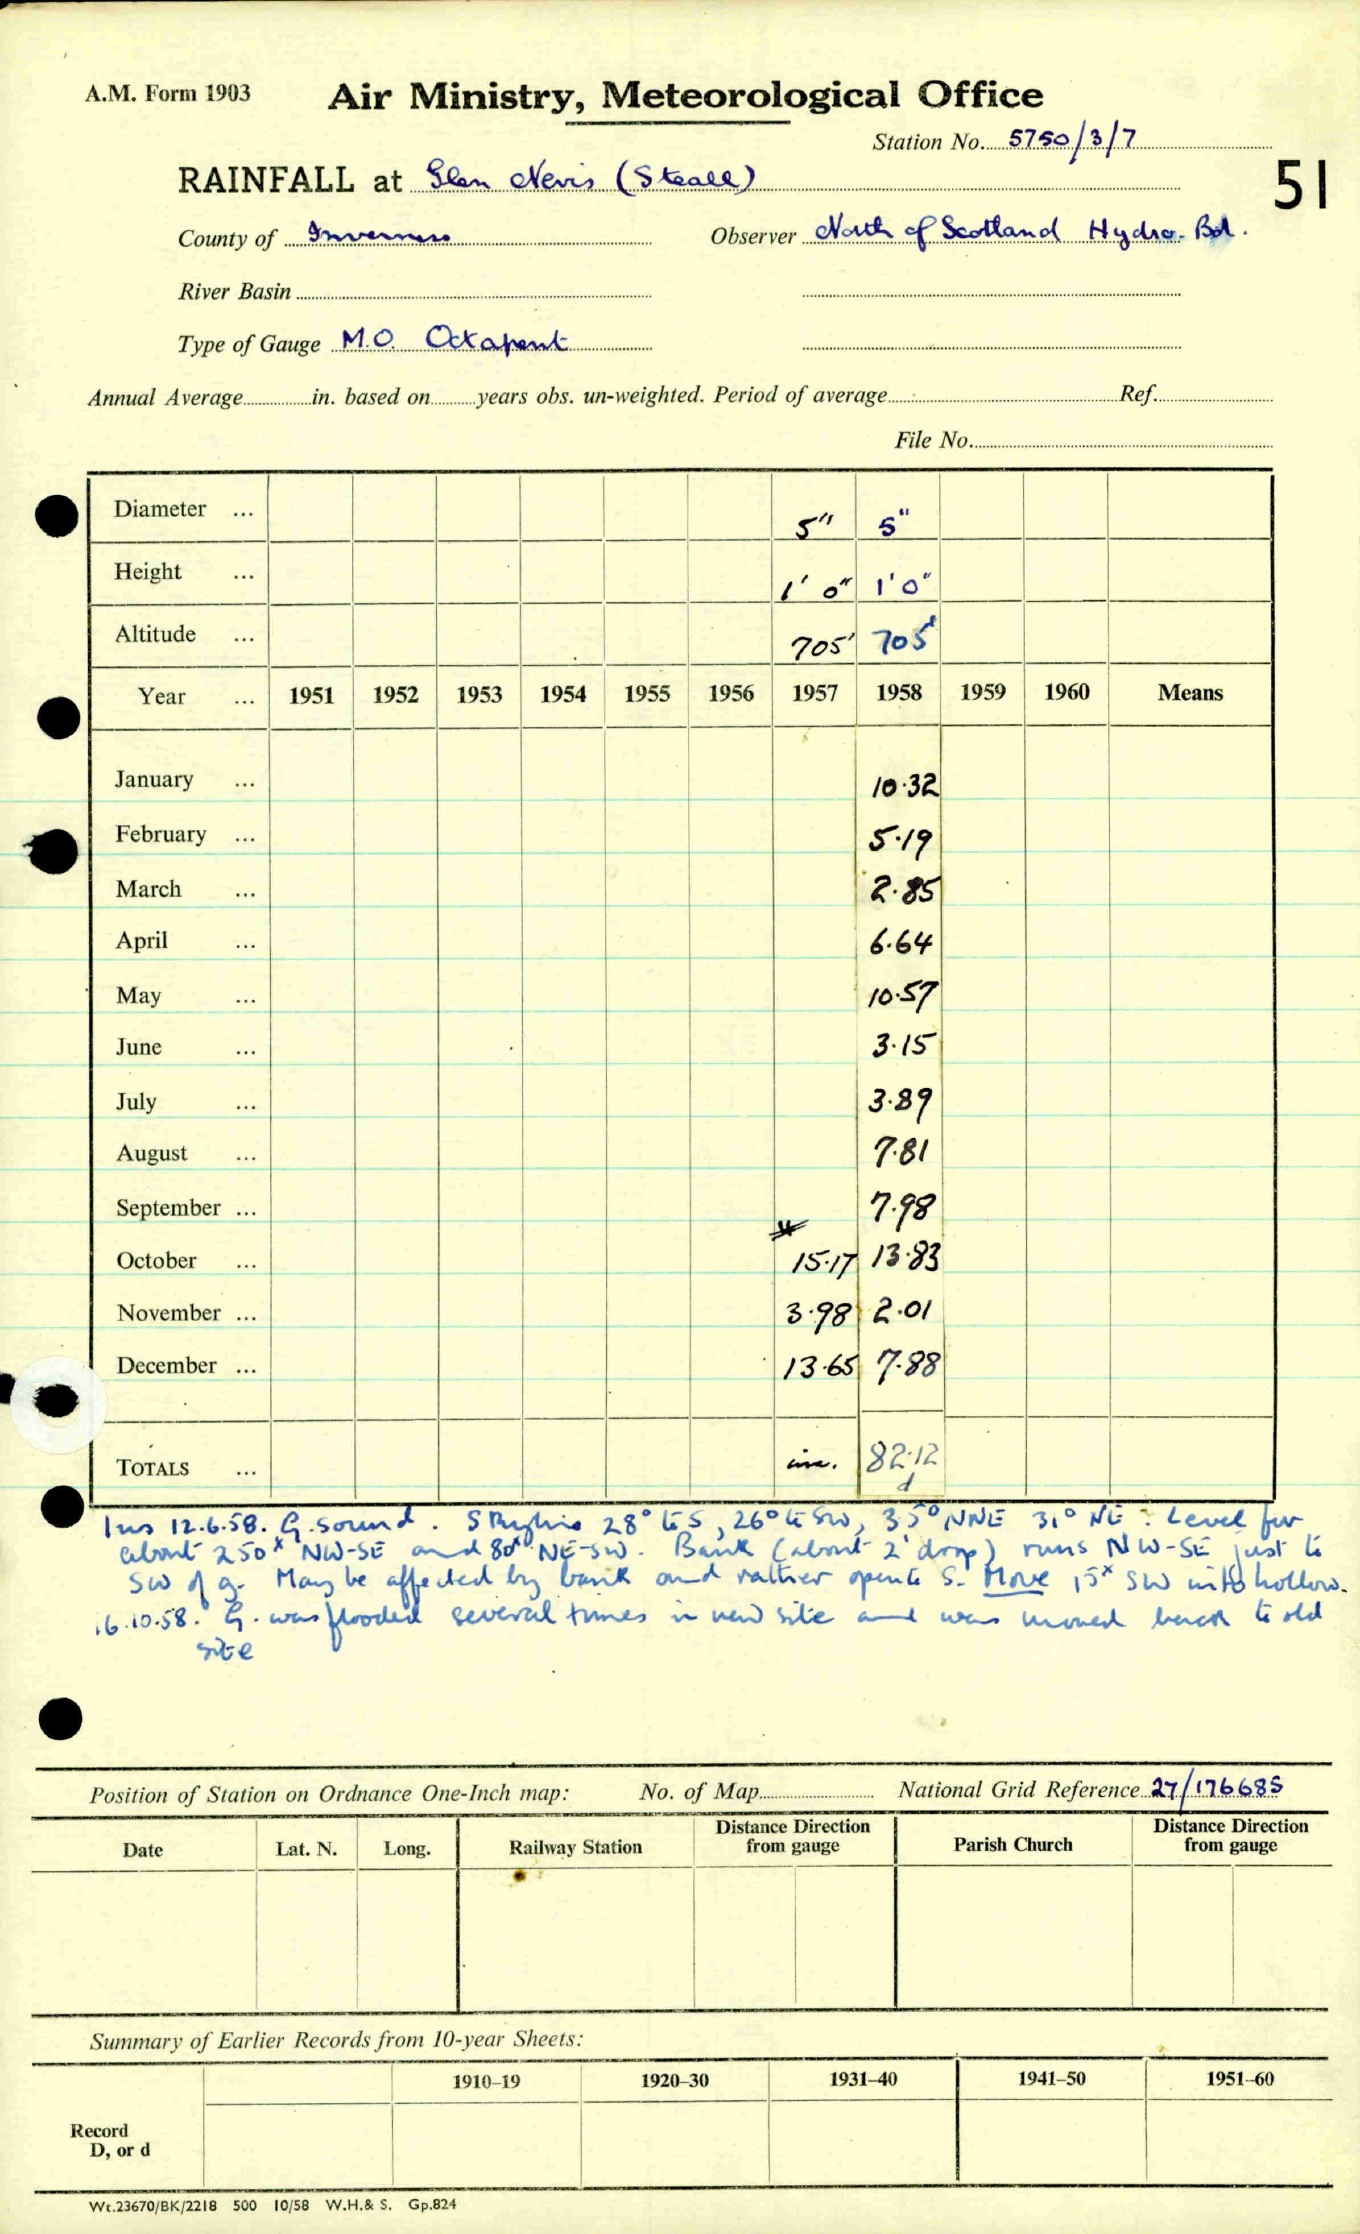 A.M. Form 1903 Air Ministry, Meteorological Office
Station No. 5750/3/7
RAINFALL at Glen Nevis (Steall)
51
County of Inverness Observer North of Scotland Hydro. Bd.
River Basin
Type of Gauge M.O. Octapent
Annual Average in. based on years obs. un-weighted. Period of average Ref.
File No.
Diameter ... 5" 5"
Height ... 1' 0" 1' 0"
Altitude ... 705' 705'
Year ... 1951 1952 1953 1954 1955 1956 1957 1958 1959 1960 Means
January ... 10.32
February ... 5.19
March ... 2.85
April ... 6.64
May ... 10.57
June ... 3.15
July ... 3.89
August ... 7.81
September ... 7.98
October ... 15.17 13.83
November ... 3.98 2.01
December ... 13.65 7.88
TOTALS ... inc. 82.12
d
Ins 12.6.58. G. sound. Skyline 28° to S, 26° to SW, 35° NNE 31° NE. Level for
about 250x NW-SE and 80x NE-SW. Bank (about 2' drop) runs NW-SE just to
SW of g. May be affected by bank and rather open to S. Move 15x SW into hollow.
16.10.58. G. was flooded several times in new site and was moved back to old
site
Position of Station on Ordnance One-Inch map: No. of Map National Grid Reference 27/176685
Date Lat. N. Long. Railway Station Distance Direction from gauge Parish Church Distance Direction from gauge
Summary of Earlier Records from 10-year Sheets:
1910–19 1920–30 1931–40 1941–50 1951–60
Record
D, or d
Wt.23670/BK/2218 500 10/58 W.H.& S. Gp.824